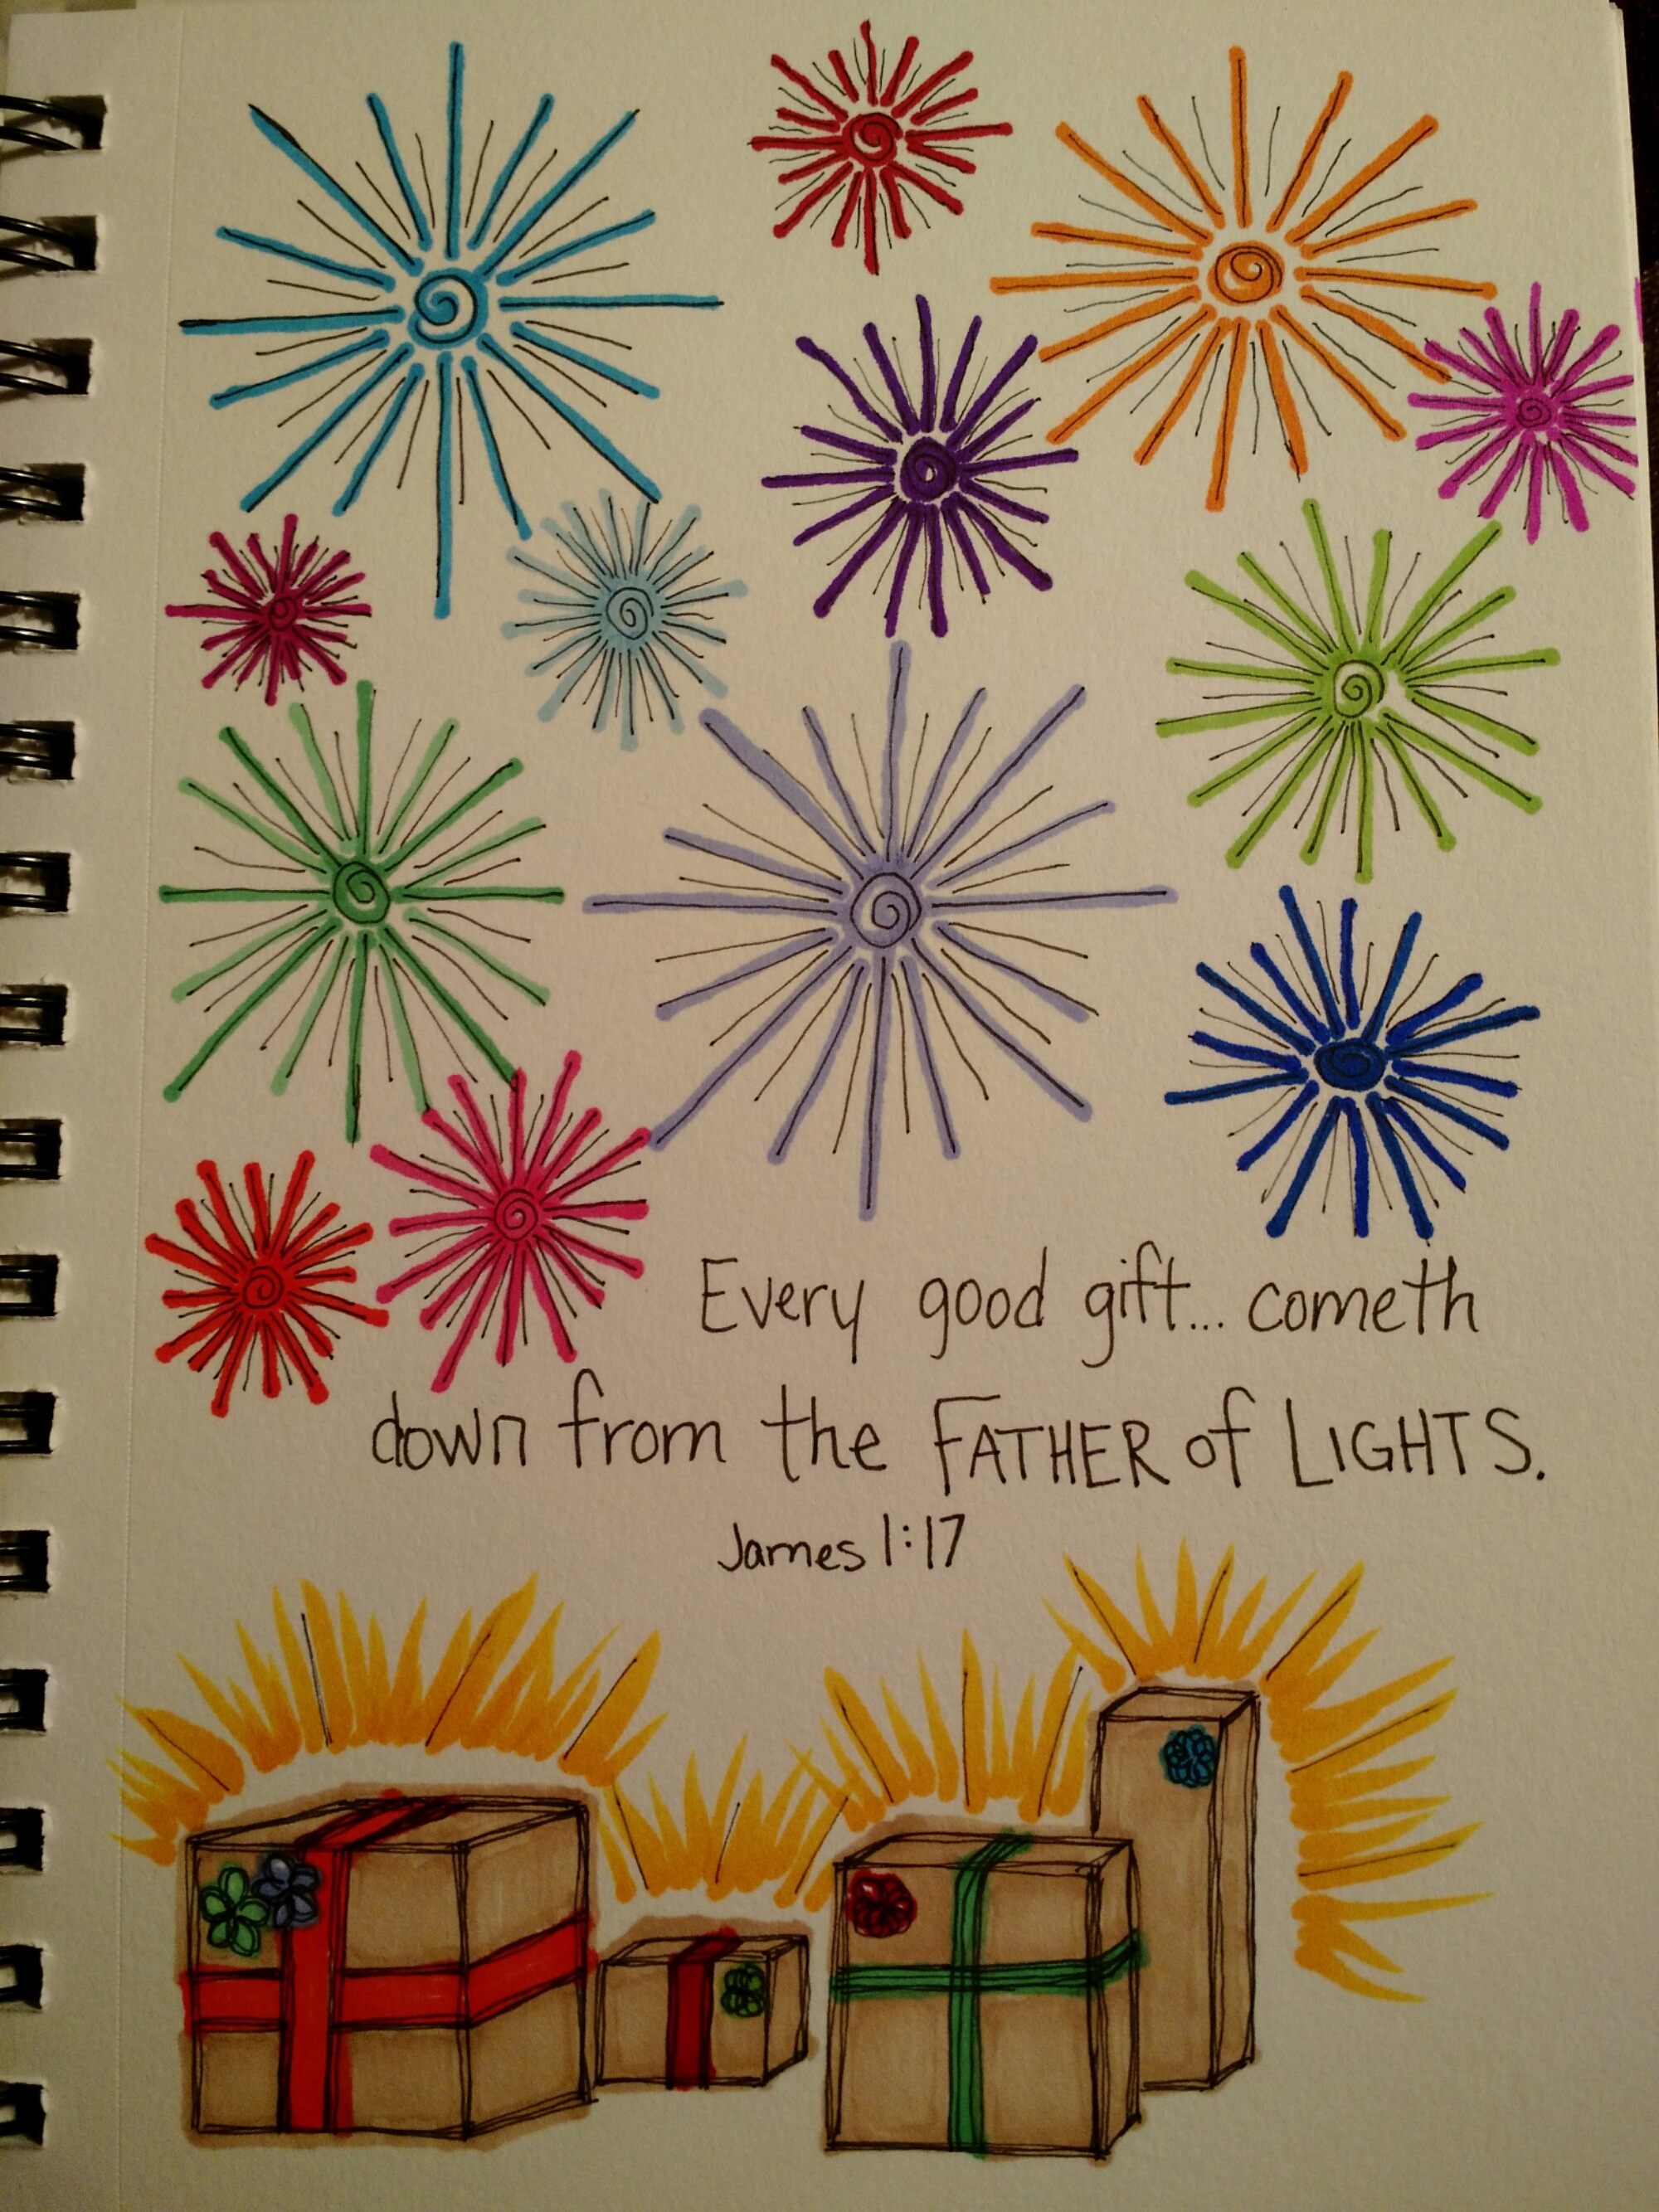 Every good gift... cometh
down from the FATHER of LIGHTS.
James 1:17